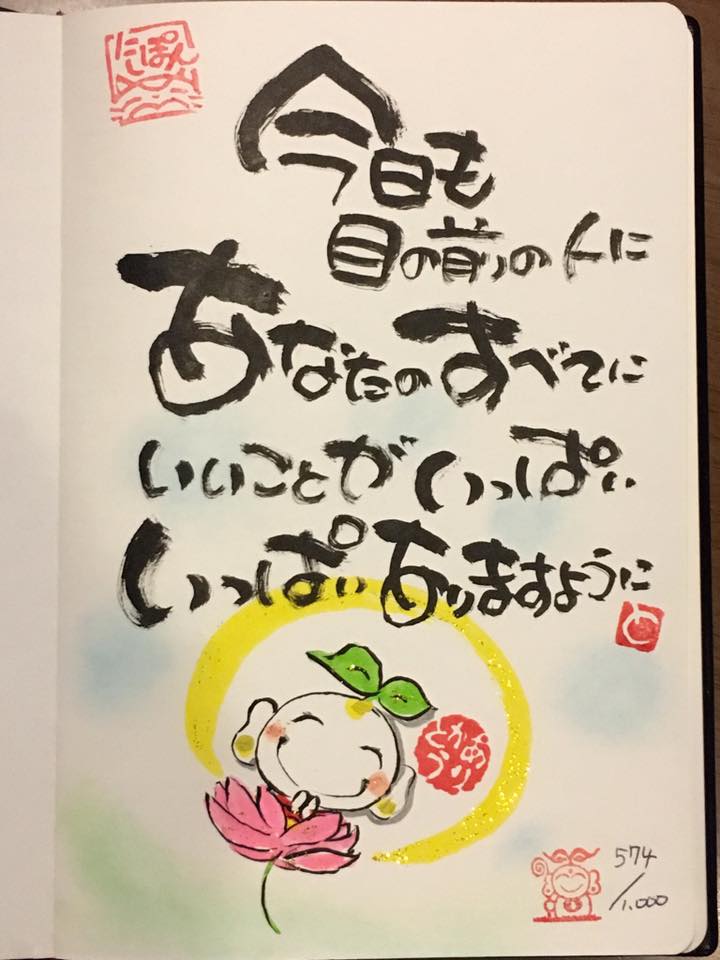 にっぽん
今日も
目の前の人に
あなたのすべてに
いいことがいっぱい
いっぱいありますように
574/1,000